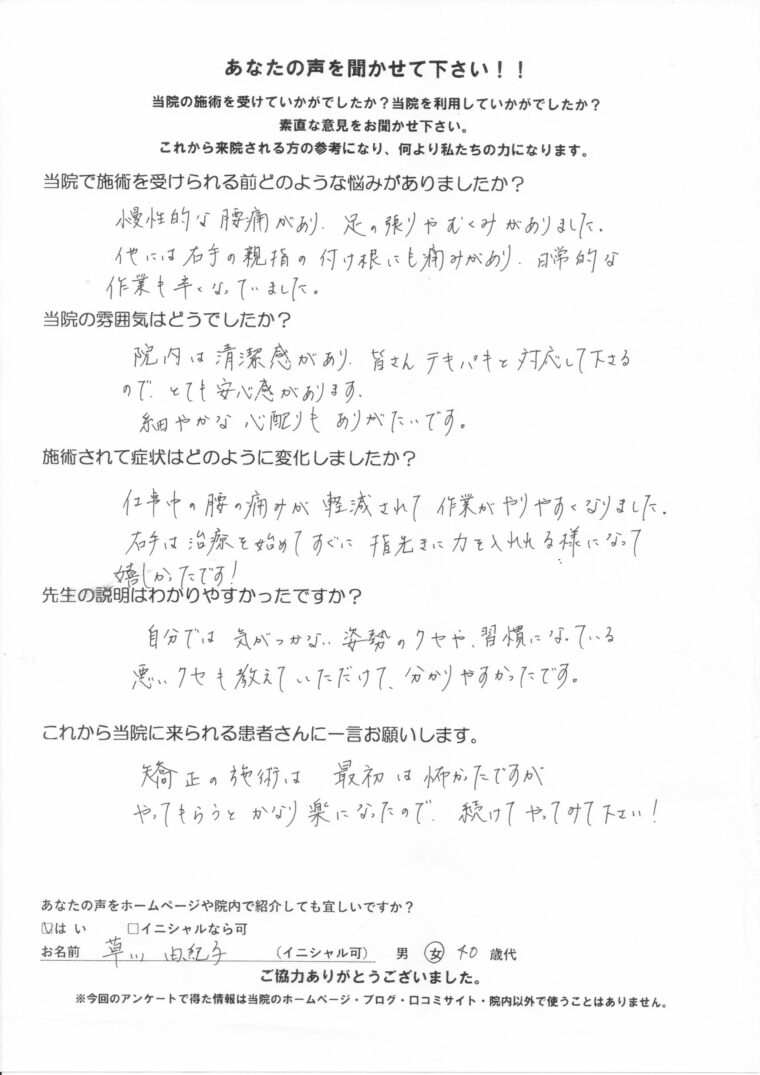 あなたの声を聞かせて下さい！！
当院の施術を受けていかがでしたか？当院を利用していかがでしたか？
素直な意見をお聞かせ下さい。
これから来院される方の参考になり、何より私たちの力になります。
当院で施術を受けられる前どのような悩みがありましたか？
慢性的な腰痛があり、足の張りやむくみがありました。
他には右手の親指の付け根にも痛みがあり、日常的な
作業も辛くなっていました。
当院の雰囲気はどうでしたか？
院内は清潔感があり、皆さんテキパキと対応して下さる
ので、とても安心感があります。
細やかな心配りもありがたいです。
施術されて症状はどのように変化しましたか？
仕事中の腰の痛みが軽減されて作業がやりやすくなりました。
右手は治療を始めてすぐに指先きに力を入れれる様になって
嬉しかったです！
先生の説明はわかりやすかったですか？
自分では気がつかない姿勢のクセや、習慣になっている
悪いクセも教えていただけて、分かりやすかったです。
これから当院に来られる患者さんに一言お願いします。
矯正の施術は最初は怖かたですが
やってもらうとかなり楽になったので、続けてやってみて下さい！
あなたの声をホームページや院内で紹介しても宜しいですか？
☑はい □イニシャルなら可
お名前 草川 由紀子 （イニシャル可） 男 女 40 歳代
ご協力ありがとうございました。
※今回のアンケートで得た情報は当院のホームページ・ブログ・口コミサイト・院内以外で使うことはありません。